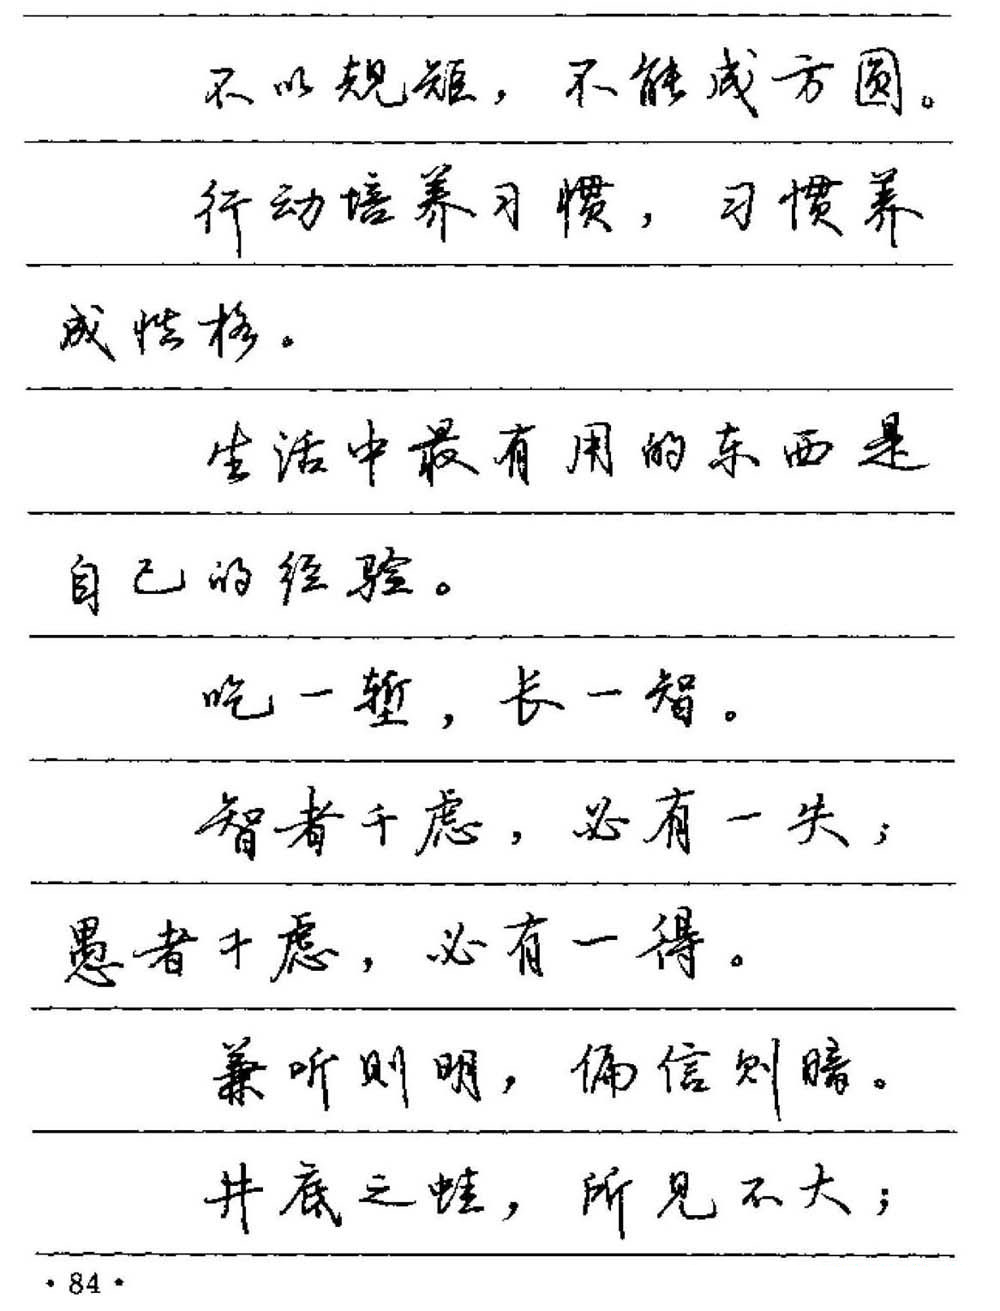 不以规矩，不能成方圆。
行动培养习惯，习惯养
成性格。
生活中最有用的东西是
自己的经验。
吃一堑，长一智。
智者千虑，必有一失；
愚者千虑，必有一得。
兼听则明，偏信则暗。
井底之蛙，所见不大；
·84·